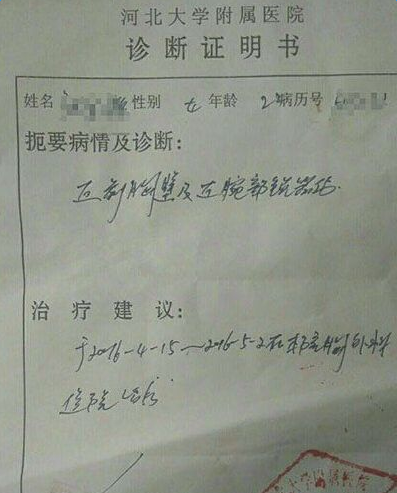 河北大学附属医院
诊断证明书
姓名 性别 女 年龄 2 病历号
扼要病情及诊断:
胸壁及左腕部锐器伤.
治疗建议:
于2016-4-15~2016-5-2在本院胸外科
住院治疗
大学附属医院